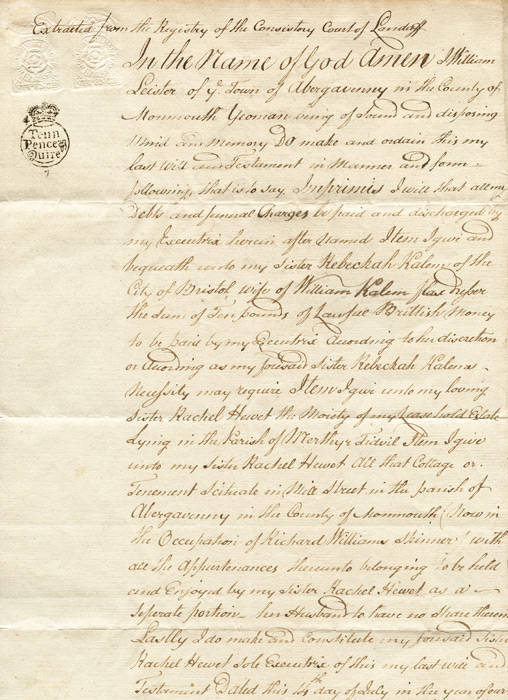 Extracted from the Registry of the Consistory Court of Landaff
In the Name of God Amen I William
Leister of ye Town of Abergavenny in the County of
Monmouth Yeoman being of Sound and disposing
Mind and Memory Do make and ordain this my
last Will and Testament in Manner and form
following, that is to say Imprimis I will that all my
Debts and funeral Charges be paid and discharged by
my Executrix herein after Named Item I give and
bequeath unto my Sister Rebeckah Kalem of the
City of Bristol wife of William Kalem
the Sum of Ten pounds of Lawful Brittish Money
to be paid by my Executrix According to her discretion
or According as my foresaid Sister Rebeckah Kalems
Necessity may require Item I give unto my loving
Sister Rachel Hewet the Moiety of my Leasehold Estate
Lying in the Parish of Merthyr Tidvil Item I give
unto my Sister Rachel Hewet All that Cottage or
Tenement Scituate in Mill Street in the parish of
Abergavenny in the County of Monmouth (Now in
the Occupation of Richard Williams Skinner) with
all the Appurtenances thereunto belonging to be held
and Enjoyed by my Sister Rachel Hewet as a
Seperate portion her Husband to have no Share therein
Lastly I do make and Constitute my foresaid Sister
Rachel Hewet Sole Executrix of this my last will and
Testament Dated this 14th day of July in the year of our
Tenn
Pence
Quire
7